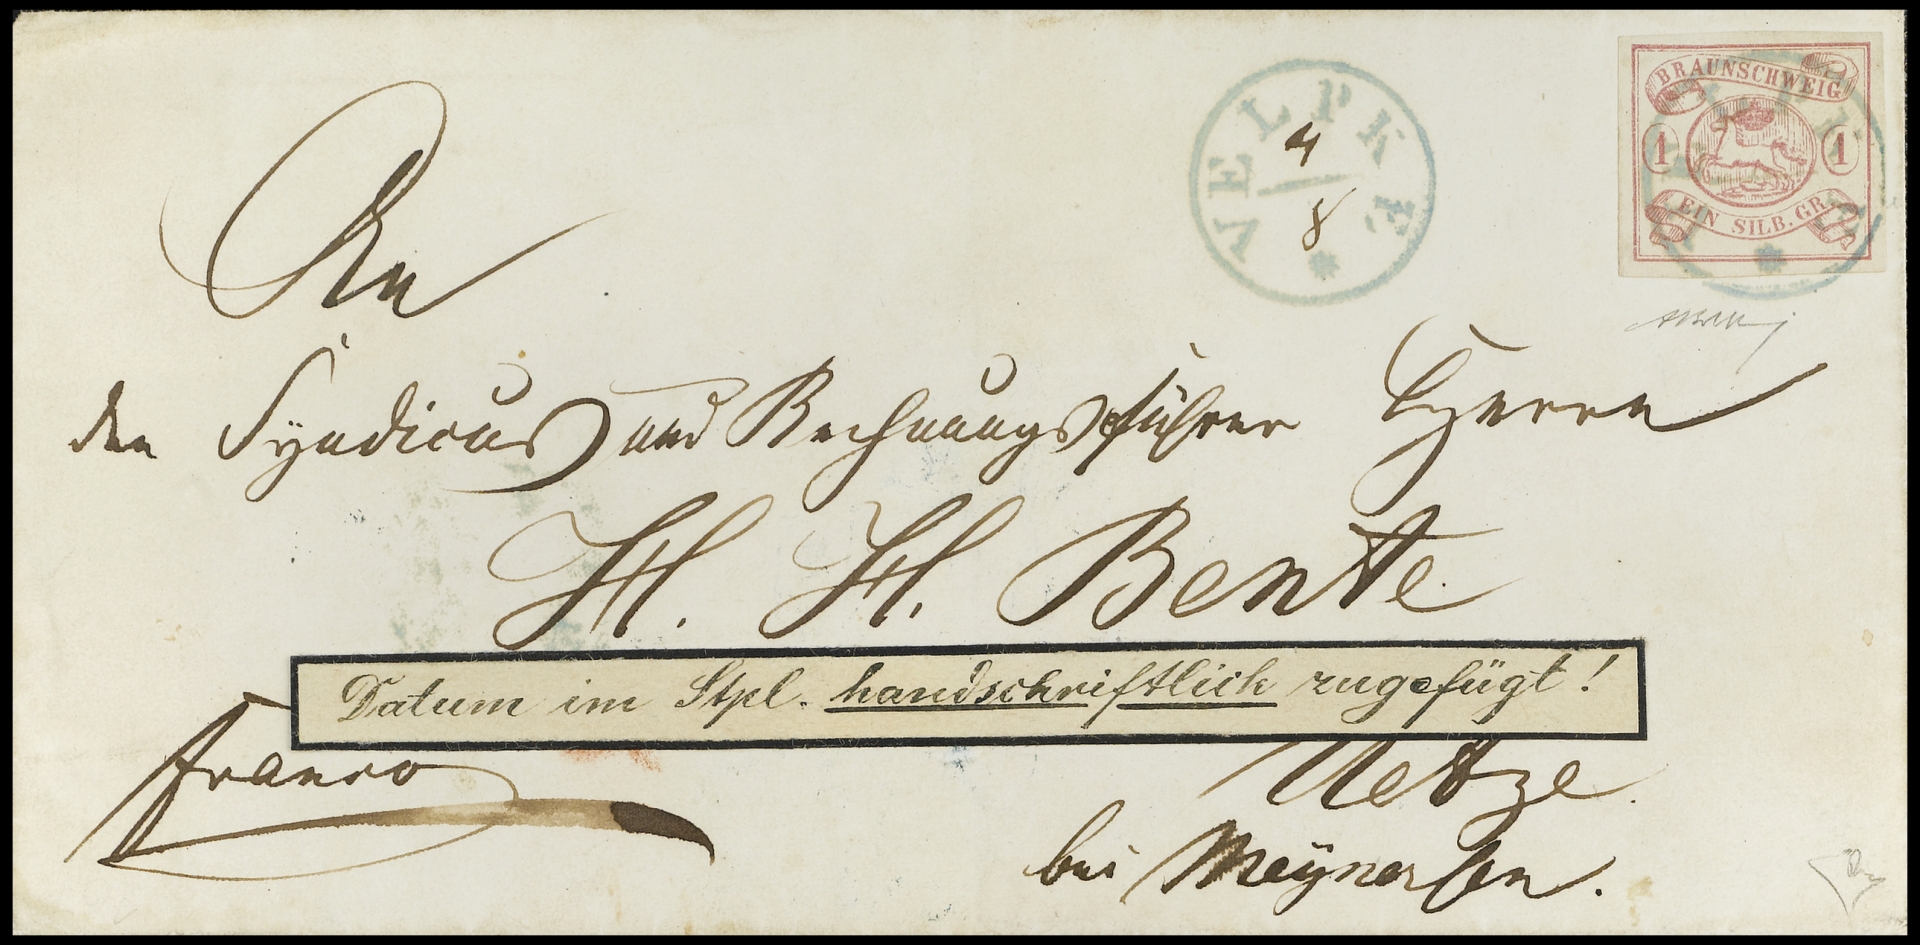 VELPKE
4
8
BRAUNSCHWEIG
1 1
EIN SILB. GR.
An
den Syndicus und Rechnungsführer Herrn
H. H. Bente
Datum im Stpl. handschriftlich zugefügt!
franco
Uetze
bei Meÿnersen.